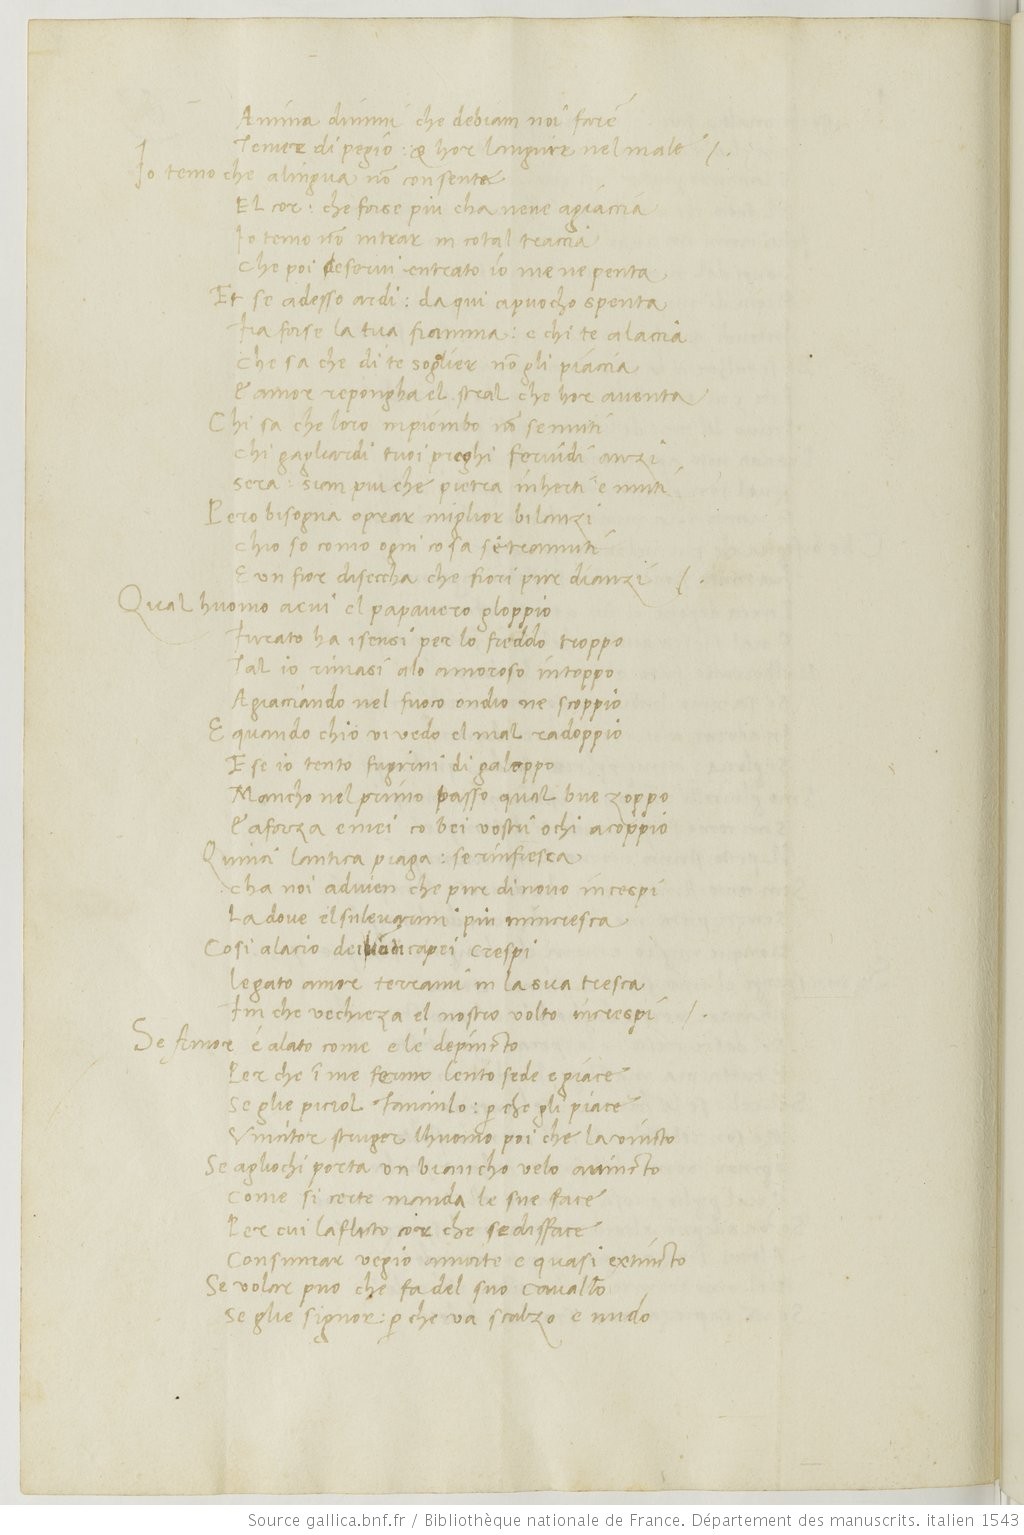 Anima dimmi che debiam noi fare
Temer di pegio : & hor languir nel male /.
Io temo che alingua nō consente
El cor : che forse piu cha neve agiaccia
Io temo nō intrar in cotal traccia
Che poi deservi entrato io me ne penta
Et se adesso ardi : da qui apuocho spenta
Fia forse la tua fiamma : e chi te alaccia
Che sa che di te soglier nō gli piaccia
E amor repongha el stral che hor aventa
Chi sa che loro in piombo nō se muti
Chi gagliardi tuoi preghi fervidi anzi
Sera : sian piu che pietra inherti e muti
Pero bisogna oprar miglior bilanzi
Chio so como ogni cosa se tramuti
E un fior diseccha che fiori pur dianzi /.
Qual huomo acui el papavero gloppio
Furato ha i sensi per lo freddo troppo
Tal io rimasi alo amoroso intoppo
Agiacciando nel fuoco ondio ne scoppio
E quando chio vi vedo el mal radoppio
E se io tento fugirmi di galoppo
Mancho nel primo passo qual bue zoppo
E aforza e miei co bei vostri ochi acoppio
Quinci lantica piaga : se rinfresca
cha noi advien che pur di novo incespi
La dove el sulevarmi piu mincresca
Cosi alacio dei capei crespi
legato amor terrami in la sua tresca
Fin che vechieza el nostro volto increspi /.
Se Amor é alato come e le depincto
Per che ī me fermo lento sede e giace
Se glie piciol fanciulo : p che gli piace
Vincitor struger lhuomo poi che la vincto
Se agliochi porta un biancho velo avincto
Come si certe manda le sue face
Per cui laflicto cor che se disface
Consumar vegio amorte e quasi extincto
Se volar puo che fa del suo cavallo
Se glie signor : p che va scalzo e nudo
Source gallica.bnf.fr / Bibliothèque nationale de France. Département des manuscrits. italien 1543